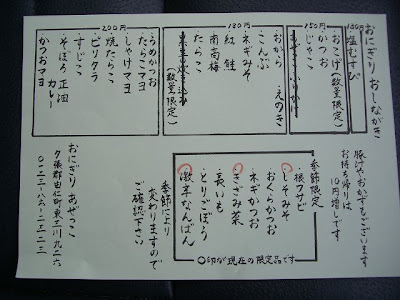 おにぎり おしながき
130円
・塩むすび
150円
・おこげ(数量限定)
・かつお
・じゃこ
180円
・おから
・えのき
・こんぶ
・ネギみそ
・紅鮭
・南高梅
・たらこ
(数量限定)
200円
・うめかつお
・たらこマヨ
・しゃけマヨ
・焼たらこ
・ピリクラ
・すじこ
・そぼろ 正油
カレー
・かつおマヨ
豚汁やおかずもございます
お持ち帰りは
10円増しです
季節限定
・根ワサビ
・しそみそ
・おくらかつお
・ネギかつお
・きざみ菜
・長いも
・とりごぼう
・激辛なんばん
○印が現在の限定品です
季節により
変わりますので
ご確認下さい
おにぎり あぜっこ
夕張郡由仁町東三川九二六